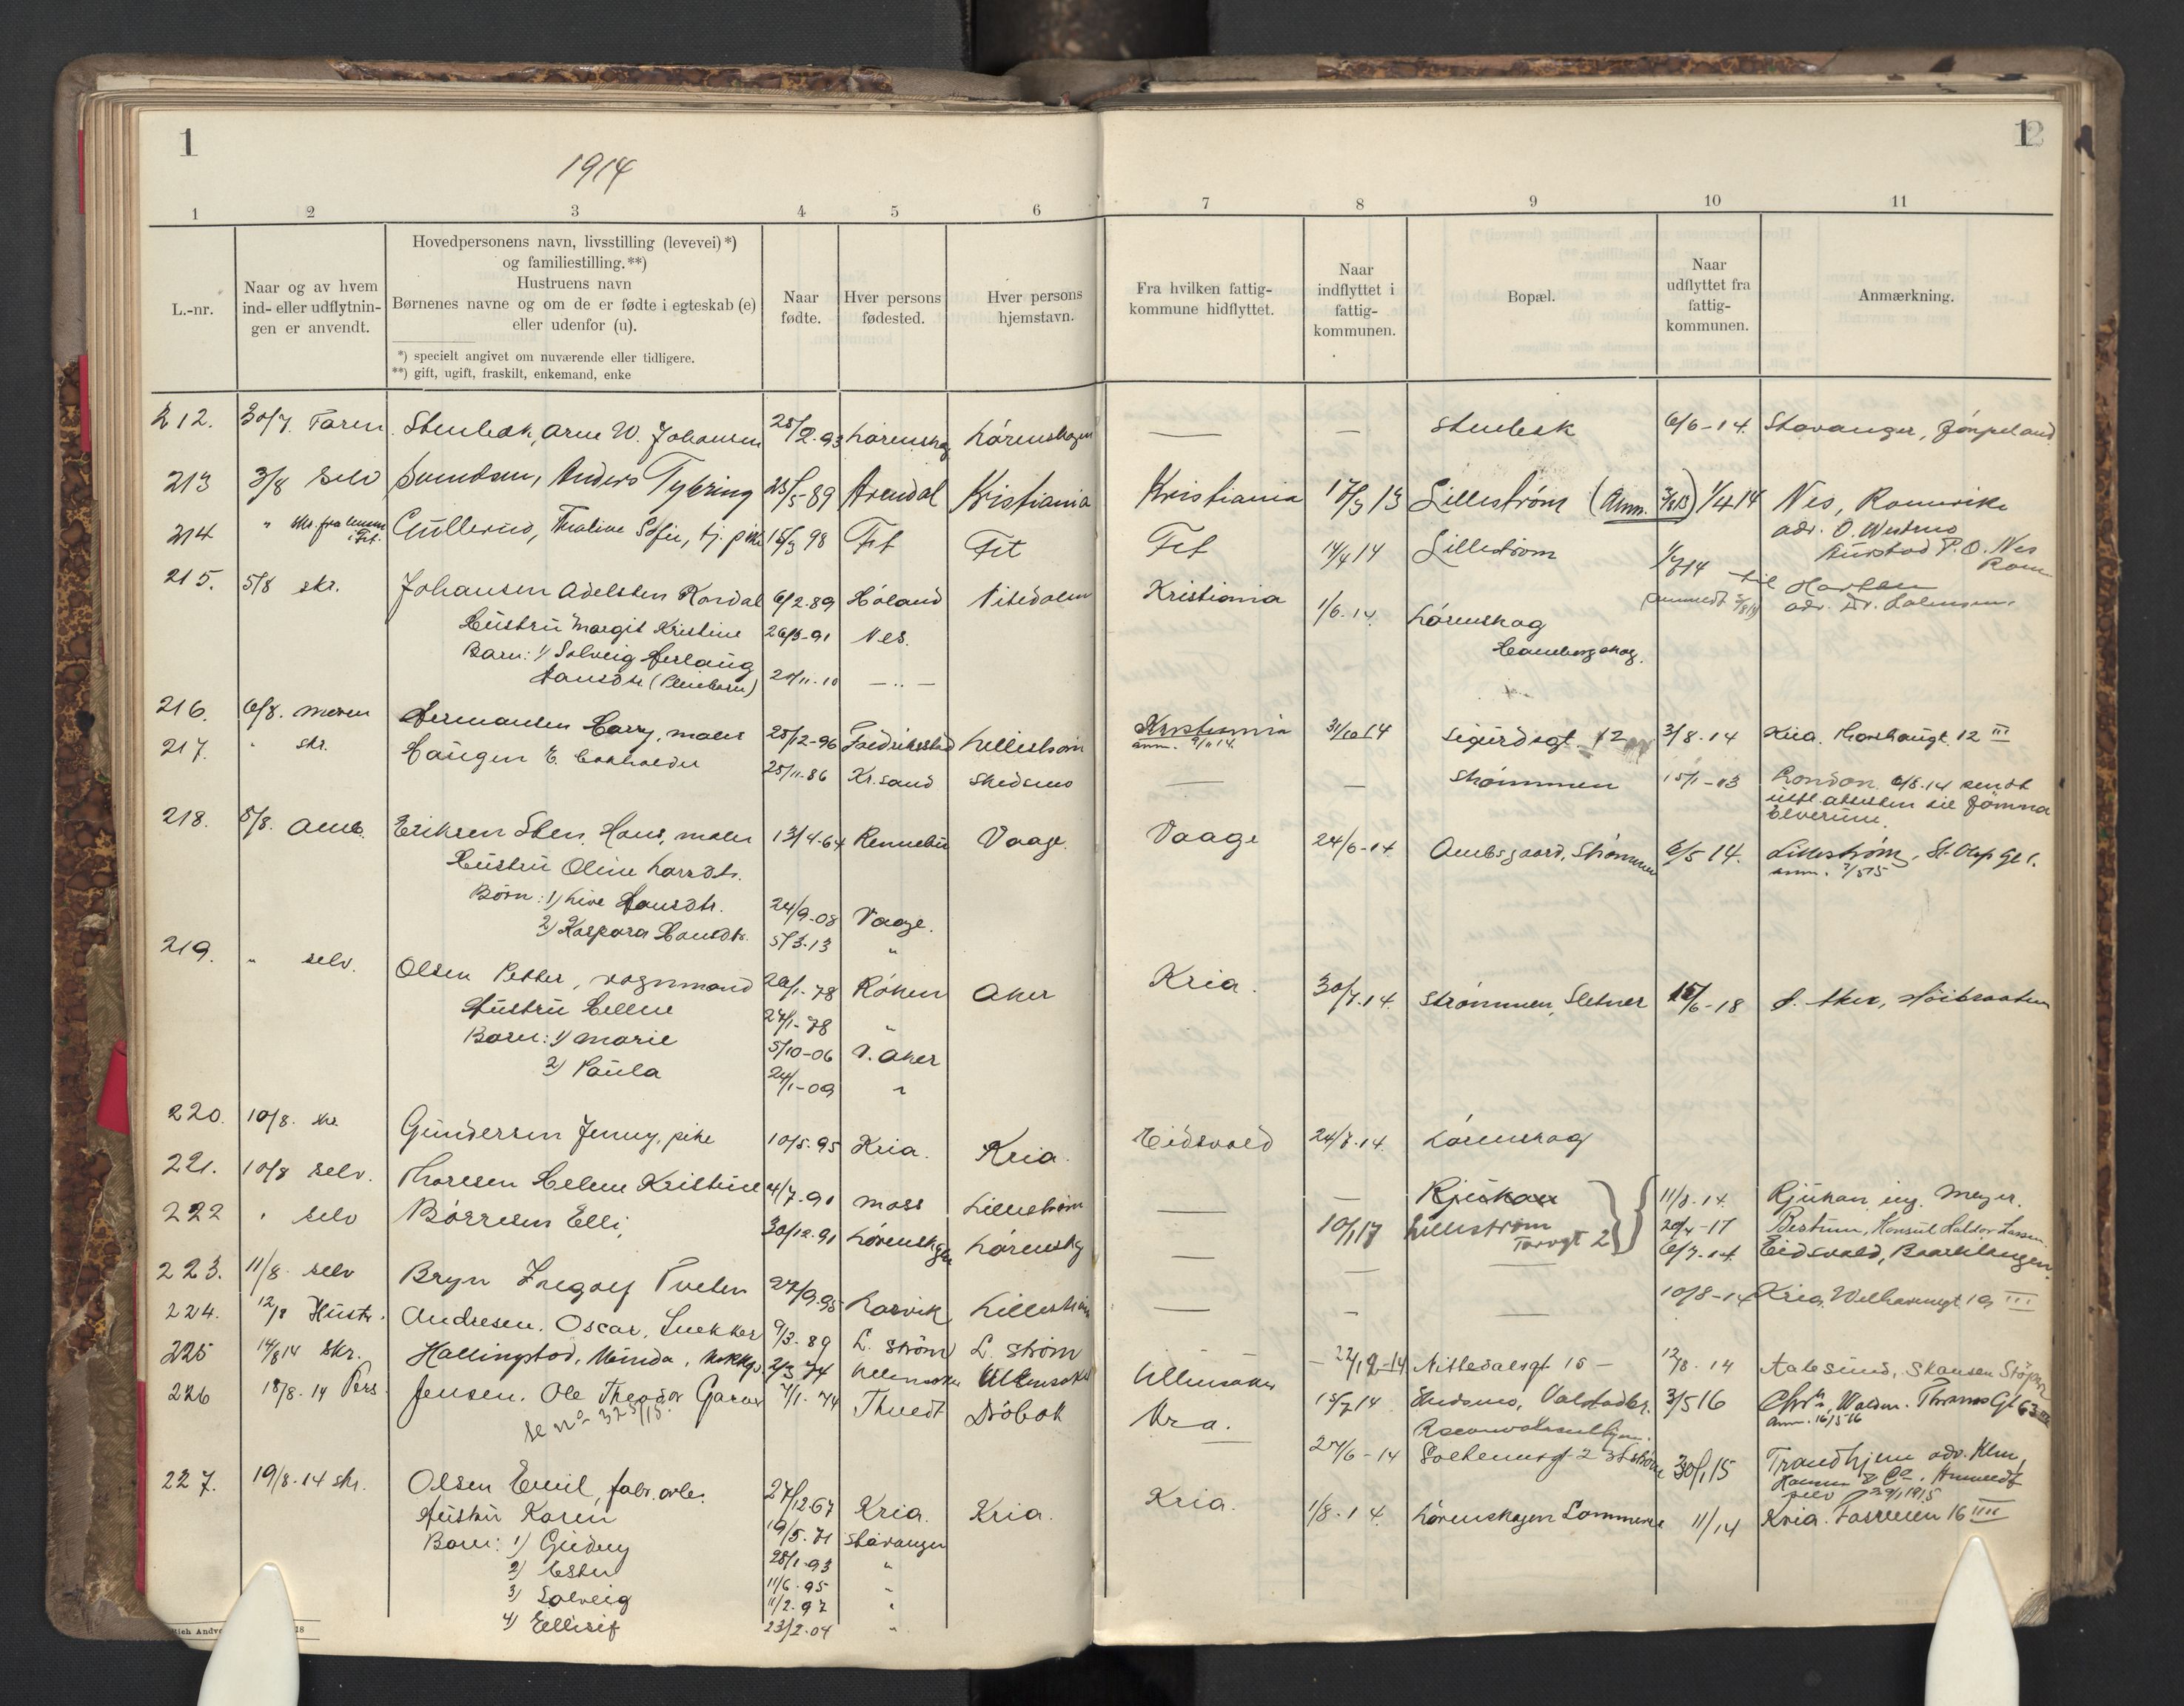 1
12
1914
1 2 3 4 5 6 7 8 9 10 11
L.-nr.
Naar og av hvem
ind- eller udflytnin-
gen er anvendt.
Hovedpersonens navn, livsstilling (levevei) *)
og familiestilling.**)
Hustruens navn
Børnenes navne og om de er fødte i egteskab (e)
eller udenfor (u).
*) specielt angivet om nuværende eller tidligere.
**) gift, ugift, fraskilt, enkemand, enke
Naar
fødte.
Hver persons
fødested.
Hver persons
hjemstavn.
Fra hvilken fattig-
kommune hidflyttet.
Naar
indflyttet i
fattig-
kommunen.
Bopæl.
Naar
udflyttet fra
fattig-
kommunen.
Anmærkning.
212. 30/7. Faren Stenbek, Arne W. Johansen 25/2-93 Lørenskog Lørenskogen — — Stenbek 6/6-14. Stavanger, Jörpeland
213 3/8 Selv Svendsen, Anders Tybring 23/5-89 Arendal Kristiania Kristiania 17/3 13 Lillestrøm 1/4 14 Nes, Romerike
adr. O. Westmo
P.O. Nes
Rom
214 " Gullerud, Thaline Sofie, tj. pike 15/3 98 Fet Fet Fet 14/4 14 Lillestrøm 1/8 14 til
adr. Dr.
215. 5/8 skr. Johansen Adelsten Kordal 6/2.89 Høland Nitedalen Kristiania 1/6.14 Lørenskog
Hustru Margit Kristine 26/3-91 Nes.
Barn: 1/ Solveig Herlaug
Hansdtr (Pleiebarn) 20/11-10 — " —
216. 6/8. moren Hermansen Harry, maler 25/12-96 Fredriksstad Lillestrøm Kristiania 31/10 14 Sigurdsgt. 12 3/8-14 Kria. 12 III
anm. 9/11 14.
217. " skr. Haugen E. 25/11-86 Kr.sand Skedsmo — — Strømmen 15/1-13 London 6/8.14 sendt
attesten til Jömna
Elverum.
218. 8/8. Eriksen Sten, Hans, maler 13/4-64 Rennebu Vaage. Vaage 24/6-14 Ambsgaard, Strømmen 6/5 14. Lillestrøm, St. Olafs gt 1.
anm. 7/5 15
Hustru Oline Larsdtr.
Børn: 1/ Live Hansdtr. 24/9-08 Vaage.
2/ Kaspara Hansdtr. 5/3.13 "
219. " selv. Olsen Petter, vognmand 20/1-78 Röken Aker Kria. 30/7.14 Strømmen, Sletner 15/6-18 Ø. Aker, Höibraaten
Hustru Helene 27/1-78 "
Barn: 1/ Marie 5/10-06 V. Aker
2/ Paula 24/1-09 "
220. 10/8. skr. Gundersen Jenny, pike 10/5.95 Kria. Kria. Eidsvold 24/7.14. Lørenskog
221. 10/8 selv. Thoresen Helene Kristine 4/7-91 Moss Lillestrøm — — Rjukan 11/8.14. Rjukan ing. Meyer.
10/1 17 Lillestrøm Torvgt 2 20/4-17 Bestum, Konsul Halvor Lassen
222 " selv Børresen Elli, 30/12-91 Lørenskogen Lørenskog — — — 6/7-14 Eidsvold,
223. 11/8 selv Bryn Ingolf Tveten 27/9.95 Larvik Lillestrøm — — — 10/8-14 Kria. Welhavensgt 19 III
224. 12/8 Hustr. Andresen, Oscar, Snekker 9/3-89 L. strøm L. strøm — 22/12-14 Nittedalsgt 15 — 12/8-14 Aalesund, Skansen
225 14/8 14 skr. Hallingstad, Minda, 2/3 74 Ullensaker Ullensaker Ullensaker 15/7 14 Skedsmo, 3/5 16 Chr. Waldm. Thranes Gt 63
anm. 16/5 16
226 18/8-14 Pers. Jensen, Ole Theodor Garver 7/1-74 Thvedt Drøbak Kra. 25/6-14 Solheimsgt 2 30/1 15 Trondhjem adr. Klm.
Hansen & Co. Anmeldt
selv 29/1 1915
se No 325/15.
227. 19/8-14 skr. Olsen Emil, fabr.arb. 27/12-67 Kria. Kria. Kria. 1/8-14. Lørenskogen 11/14 Kria. 16 IIII
Hustru Karen 19/5-71 Stavanger
Barn: 1) Gudny 28/1-93 "
2) Ester 11/6-95 "
3) Solveig 11/2-97 "
4) Ellisif 23/2-04 "